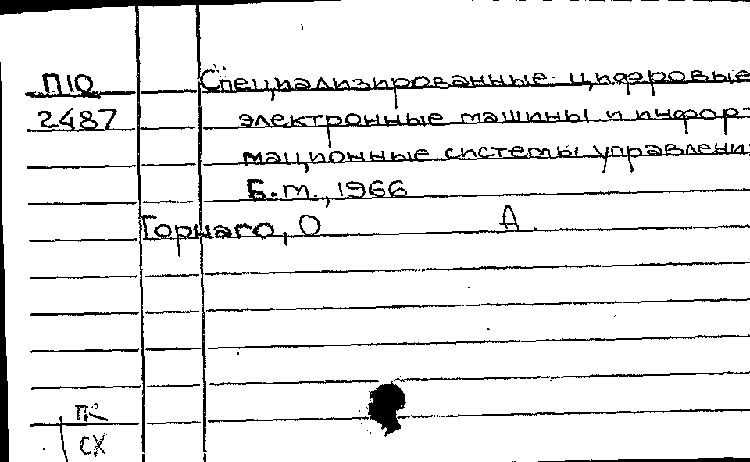 П10 Специализированные цифровые
2487 электронные машины и инфор-
мационные системы управлени
Б.м., 1966
Горнаго, О Д.
ПК
СХ